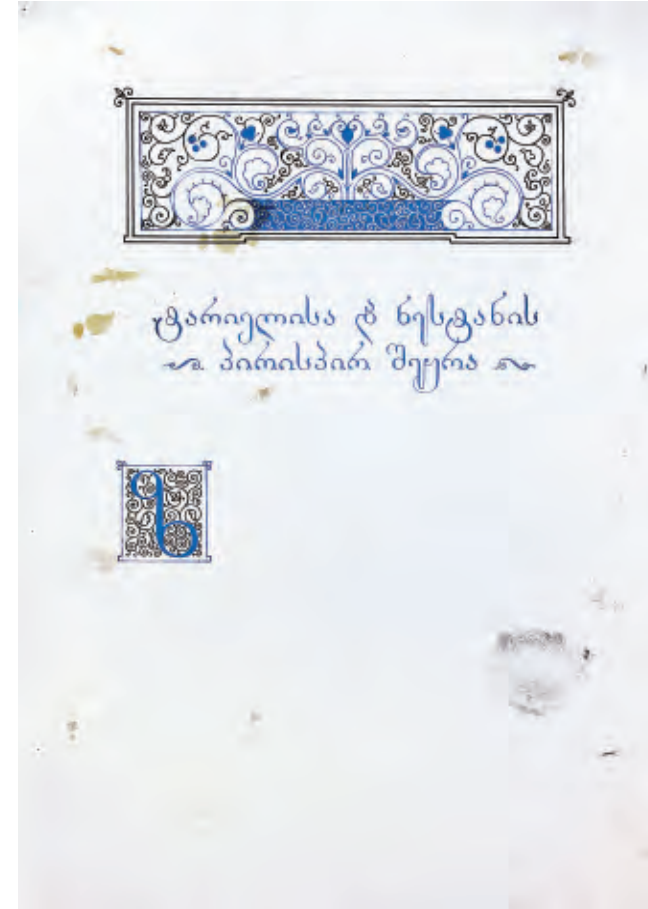 ტარიელისა და ნესტანის
პირისპირ შეყრა
ხ